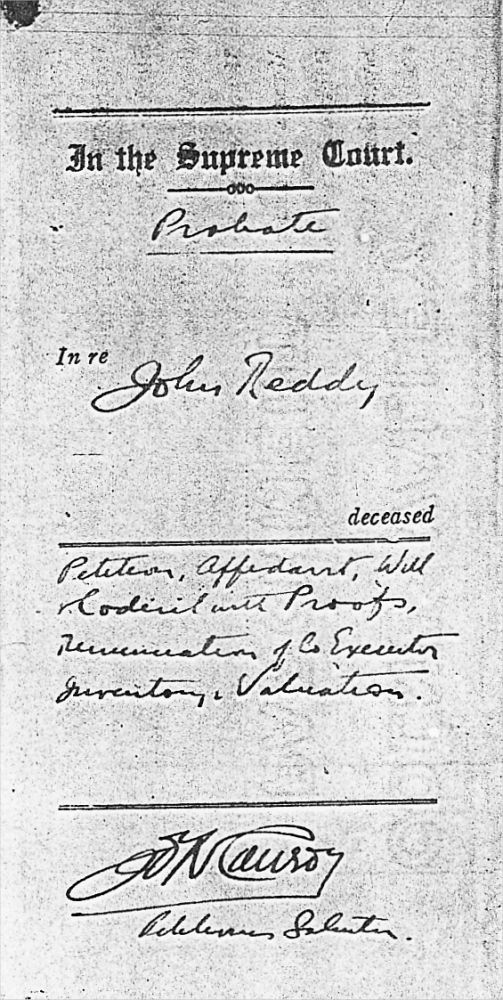 In the Supreme Court.
Probate
In re
John Reddy
deceased
Petition, Affidavit, Will
& Codicil with Proofs,
Renunciation of Co Executor
Inventory & Valuation.
Petitioners Solicitor.